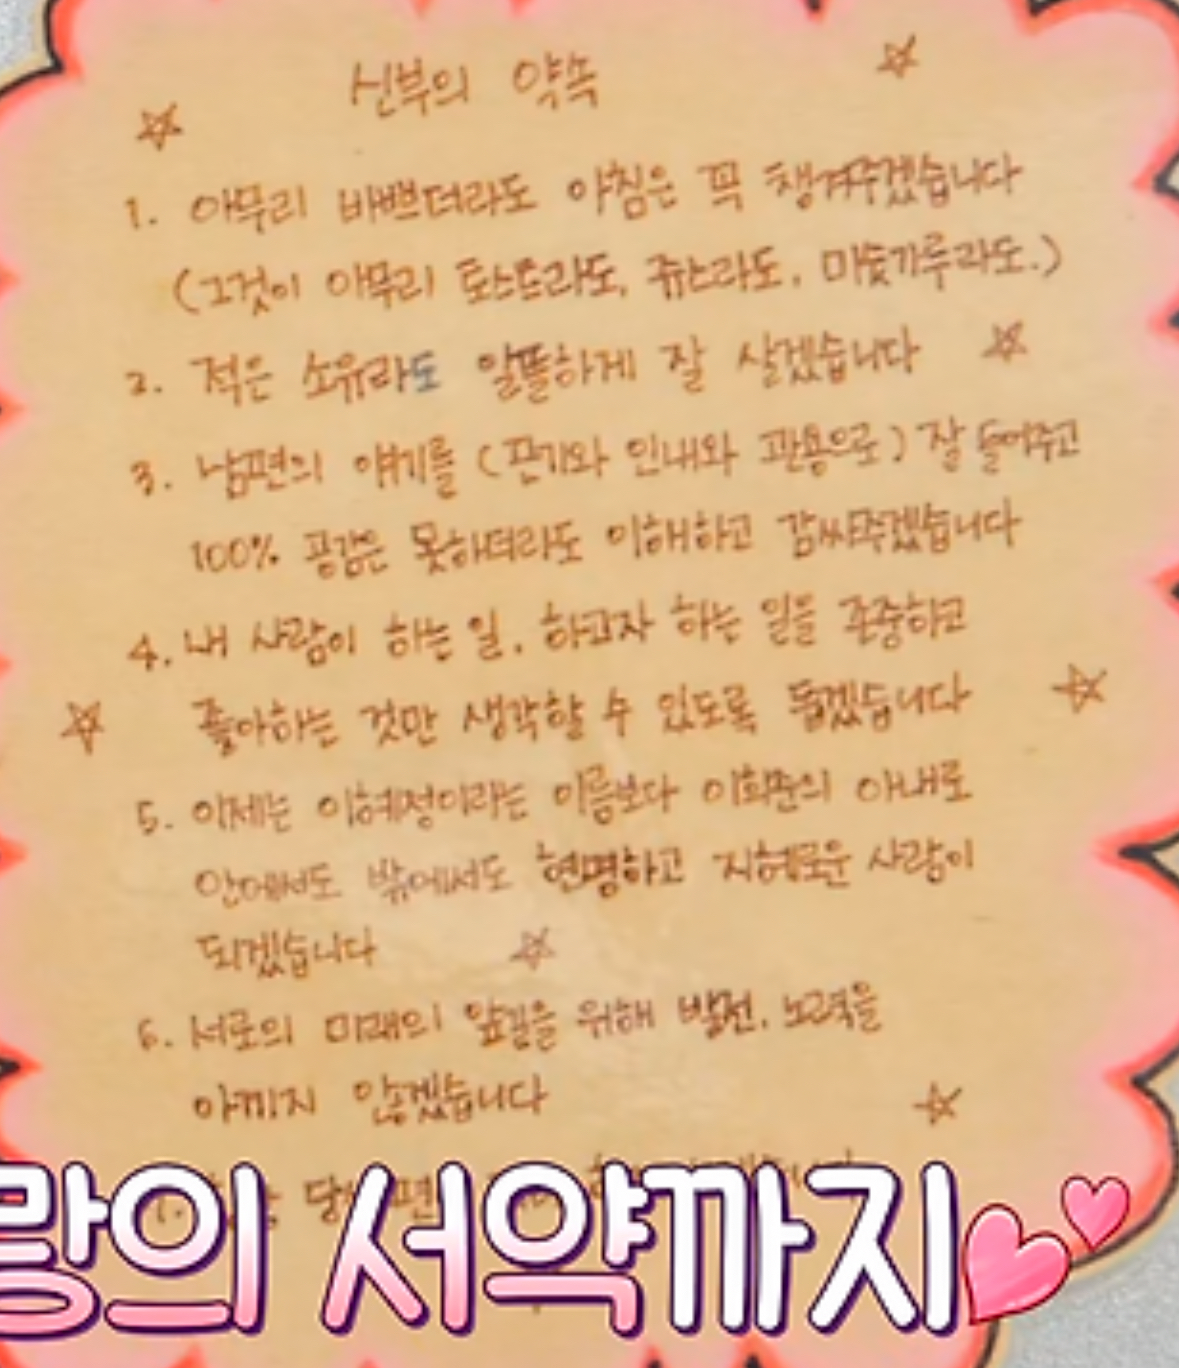 신부의 약속
1. 아무리 바쁘더라도 아침은 꼭 챙겨주겠습니다
(그것이 아무리 토스트라도, 쥬스라도, 미숫가루라도.)
2. 적은 소유라도 알뜰하게 잘 살겠습니다
3. 남편의 얘기를 (끈기와 인내와 관용으로) 잘 들어주고
100% 공감은 못하더라도 이해하고 감싸주겠습니다
4. 내 사람이 하는 일, 하고자 하는 일을 존중하고
좋아하는 것만 생각할 수 있도록 돕겠습니다
5. 이제는 이혜정이라는 이름보다 이희준의 아내로
안에서도 밖에서도 현명하고 지혜로운 사람이
되겠습니다
6. 서로의 미래의 앞길을 위해 발전, 노력을
아끼지 않겠습니다
랑의 서약까지